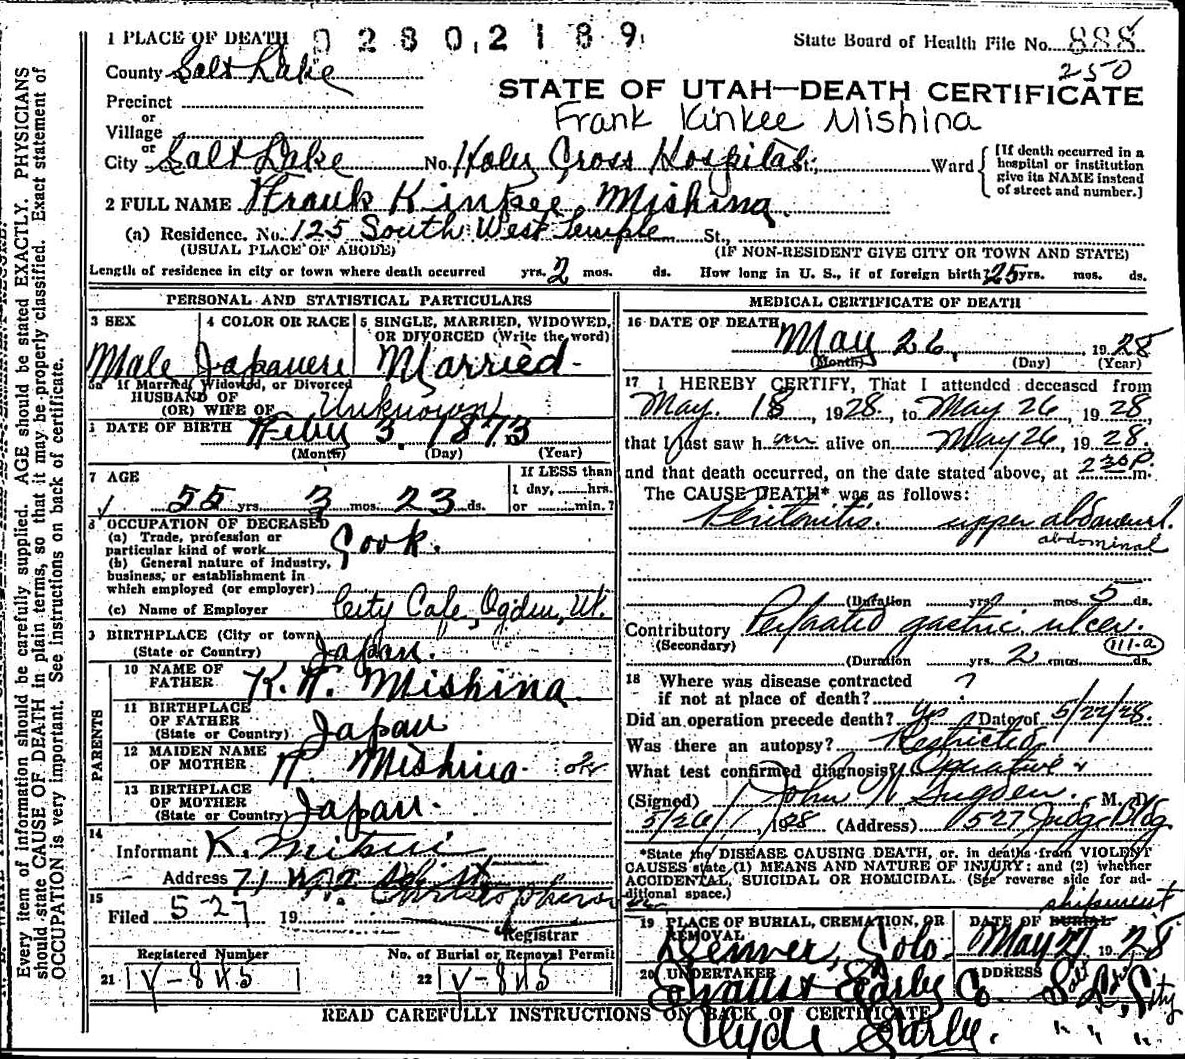 Every item of information should be carefully supplied. AGE should be stated EXACTLY. PHYSICIANS
should state CAUSE OF DEATH in plain terms, so that it may be properly classified. Exact statement of
OCCUPATION is very important. See instructions on back of certificate.
1 PLACE OF DEATH 0 2 8 0 2 1 8 9
State Board of Health File No. 888
250
County Salt Lake
STATE OF UTAH—DEATH CERTIFICATE
Frank Kinkee Mishina
Precinct
or
Village
or
City Salt Lake No. Holy Cross Hospital St; Ward
[If death occurred in a
hospital or institution
give its NAME instead
of street and number.]
2 FULL NAME Frank Kinkee Mishina
(a) Residence. No. 125 South West Temple St.,
(USUAL PLACE OF ABODE) (IF NON-RESIDENT GIVE CITY OR TOWN AND STATE)
Length of residence in city or town where death occurred yrs. 2 mos. ds. How long in U. S., if of foreign birth? 25 yrs. mos. ds.
PERSONAL AND STATISTICAL PARTICULARS
3 SEX
Male
4 COLOR OR RACE
Japanese
5 SINGLE, MARRIED, WIDOWED,
OR DIVORCED (Write the word)
Married
5a If Married, Widowed, or Divorced
HUSBAND OF
(OR) WIFE OF Unknown
6 DATE OF BIRTH Feby 3, 1873
(Month) (Day) (Year)
7 AGE
55 yrs. 3 mos. 23 ds.
If LESS than
1 day, hrs.
or min.?
8 OCCUPATION OF DECEASED
(a) Trade, profession or
particular kind of work Cook.
(b) General nature of industry,
business, or establishment in
which employed (or employer)
(c) Name of Employer City Cafe, Ogden, Ut.
9 BIRTHPLACE (City or town)
(State or Country) Japan.
PARENTS
10 NAME OF
FATHER K. H. Mishina
11 BIRTHPLACE
OF FATHER
(State or Country) Japan
12 MAIDEN NAME
OF MOTHER N. Mishina ok
13 BIRTHPLACE
OF MOTHER
(State or Country) Japan.
14
Informant K. Mitsui
Address 71
15
Filed 5-27 19
Registrar
Registered Number
21 V-845
No. of Burial or Removal Permit
22 V-845
MEDICAL CERTIFICATE OF DEATH
16 DATE OF DEATH May 26, 1928
(Month) (Day) (Year)
17 I HEREBY CERTIFY, That I attended deceased from
May. 18, 1928., to May 26, 1928,
that I last saw h im alive on May 26, 1928.
and that death occurred, on the date stated above, at 2 30 P. m.
The CAUSE DEATH* was as follows:
Peritonitis. upper abdominal.
abdominal
(Duration yrs. mos. 5 ds.
Contributory Perforated gastric ulcer.
(Secondary) 111-a
(Duration yrs. 2 mos. ds.
18 Where was disease contracted
if not at place of death? ?
Did an operation precede death? Yes Date of 5/22/28.
Was there an autopsy? Restricted
What test confirmed diagnosis? Operative
(Signed) John N Sugden. M. D.
5/26/ 1928 (Address) 527 Judge Bldg
*State the DISEASE CAUSING DEATH, or, in deaths from VIOLENT
CAUSES state (1) MEANS AND NATURE OF INJURY; and (2) whether
ACCIDENTAL, SUICIDAL OR HOMICIDAL. (See reverse side for ad-
ditional space.)
19 PLACE OF BURIAL, CREMATION, OR
REMOVAL
Denver, Colo.
shipment
DATE OF BURIAL
May 27 1928
20 UNDERTAKER
Evans & Early Co.
ADDRESS
Salt Lake City
Clyde Early. " " "
READ CAREFULLY INSTRUCTIONS ON BACK OF CERTIFICATE